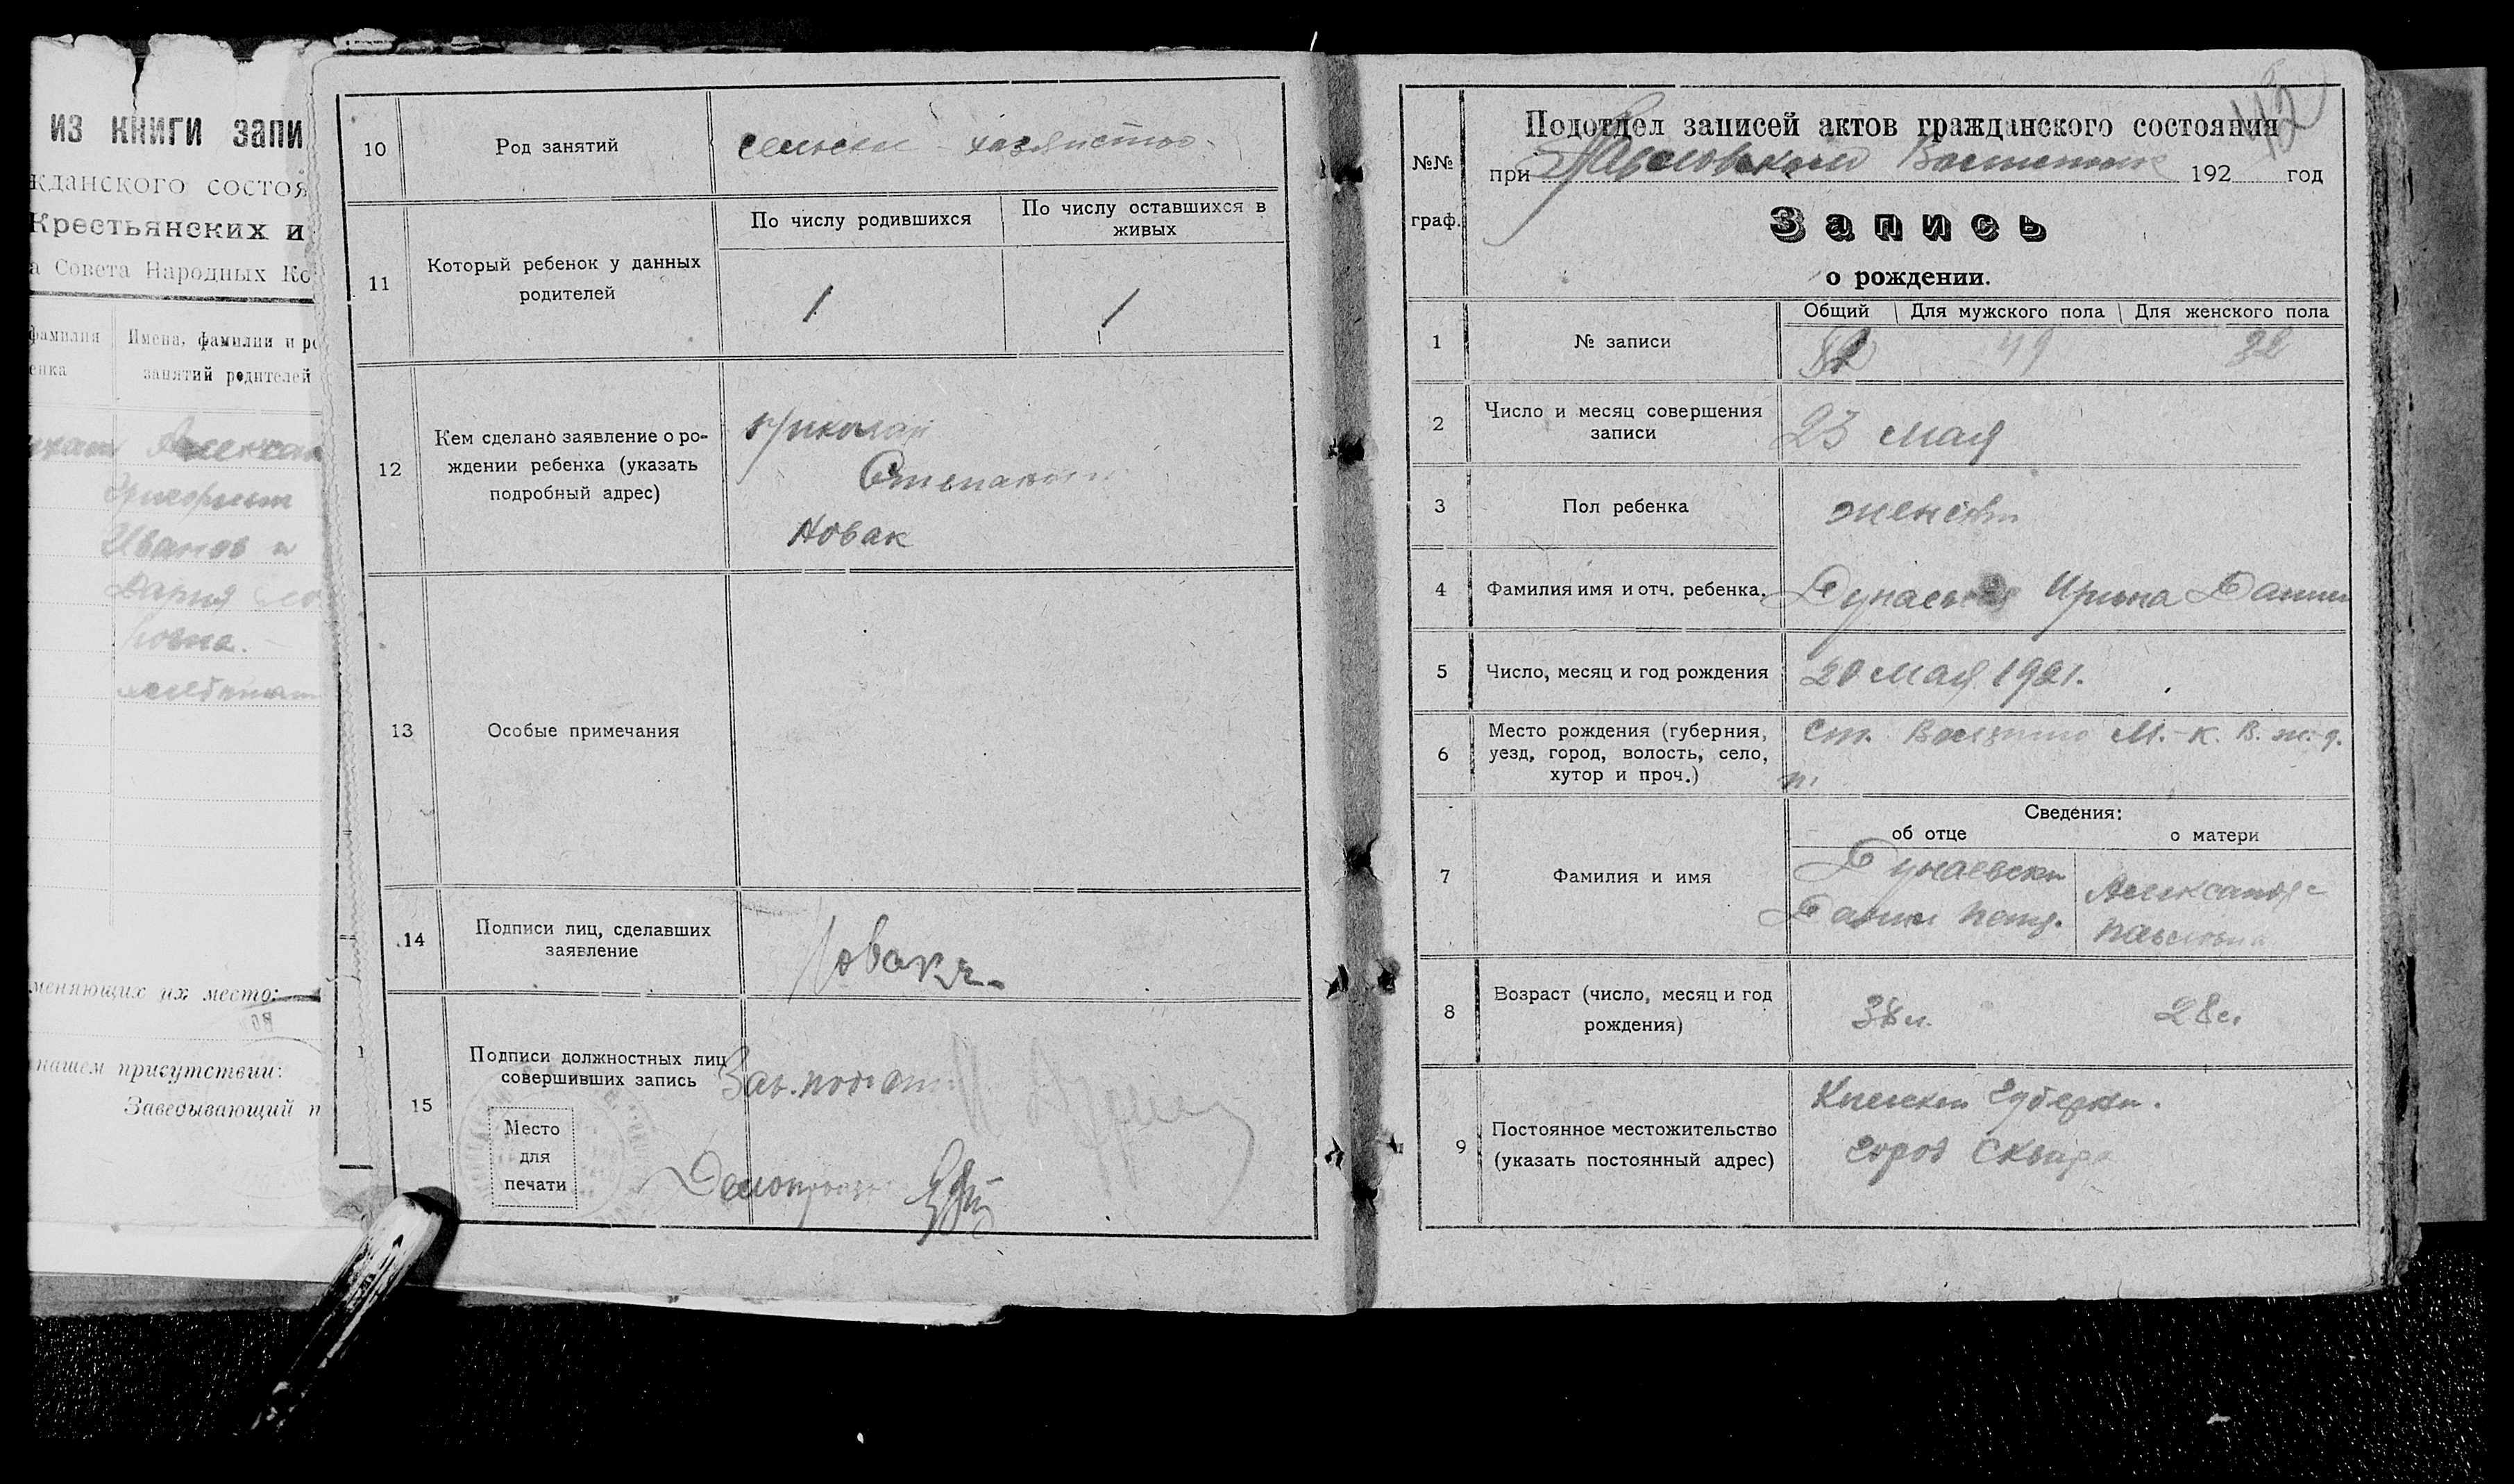 из книги запи
жданского состоя
Крестьянских и
а Совета Народных Ко
фамилия
енка
Имена, фамилии и ро
занятий родителей
Иванов и
Дария
ровна.
меняющих их место:
нашем присутствии:
Заведывающий п
10
Род занятий
сельски хазяиство
11
Который ребенок у данных
родителей
По числу родившихся
По числу оставшихся в
живых
1
1
12
Кем сделано заявление о ро-
ждении ребенка (указать
подробный адрес)
Николай
Степанови
Новак
13
Особые примечания
14
Подписи лиц, сделавших
заявление
Новакъ
15
Подписи должностных лиц
совершивших запись
Место
для
печати
Зав. подот.
Делопроизв
№№
граф.
Подотдел записей актов гражданского состояния
при Павловском 192 год
Запись
о рождении.
1
№ записи
Общий
Для мужского пола
Для женского пола
49
32
2
Число и месяц совершения
записи
23 мая
3
Пол ребенка
женски
4
Фамилия имя и отч. ребенка.
Дунаевская Ирина Данил
5
Число, месяц и год рождения
20 мая 1921.
6
Место рождения (губерния,
уезд, город, волость, село,
хутор и проч.)
ст. М.-К. В. ж.-д.
7
Фамилия и имя
Сведения:
об отце
о матери
Дунаевски
Данил
Александра
Павловна
8
Возраст (число, месяц и год
рождения)
38 л.
28 л.
9
Постоянное местожительство
(указать постоянный адрес)
Киевски Губерни.
город Сквира